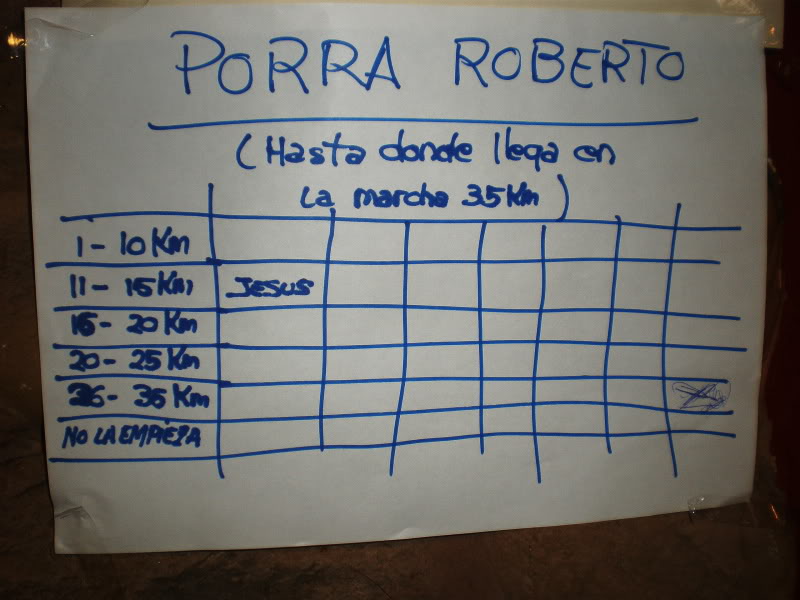 PORRA ROBERTO
(Hasta donde llega en
La marcha 35Km)
1-10Km
11-15Km
JESUS
16-20Km
20-25Km
26-35Km
NO LA EMPIEZA